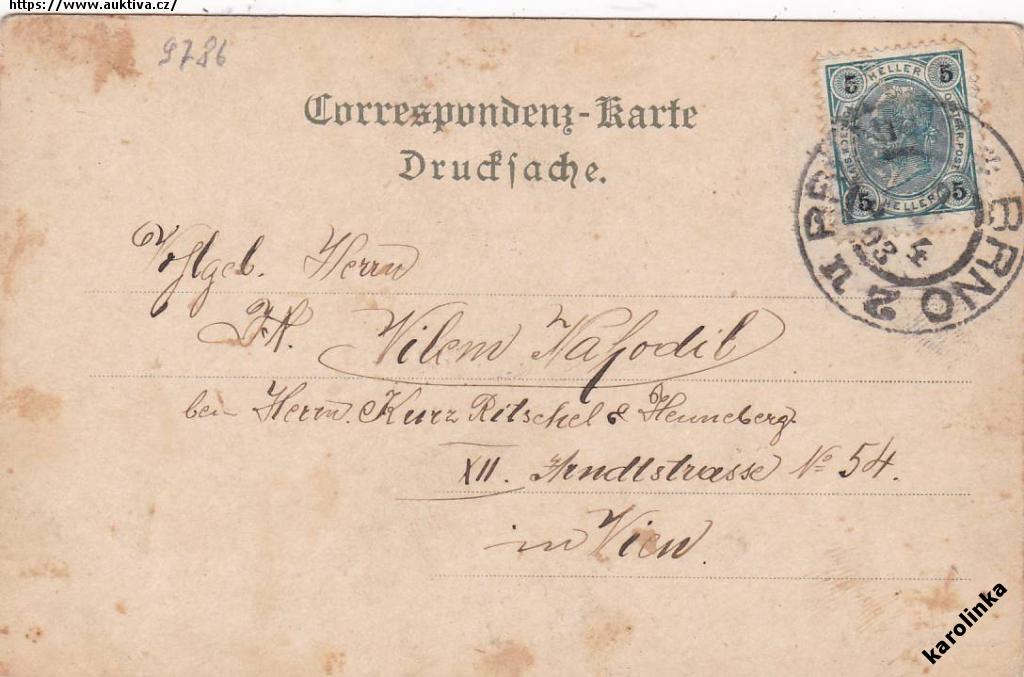 https://www.auktiva.cz/
9786
Correspondenz-Karte
Drucksache.
5 HELLER 5
5 HELLER 5
BRNO 2
03
4
Wohlgeb. Herrn
Vilem
bei Herrn. Kurz Ritschel & Henneberg.
XII. Arndtstrasse No 54.
in Wien.
karolinka